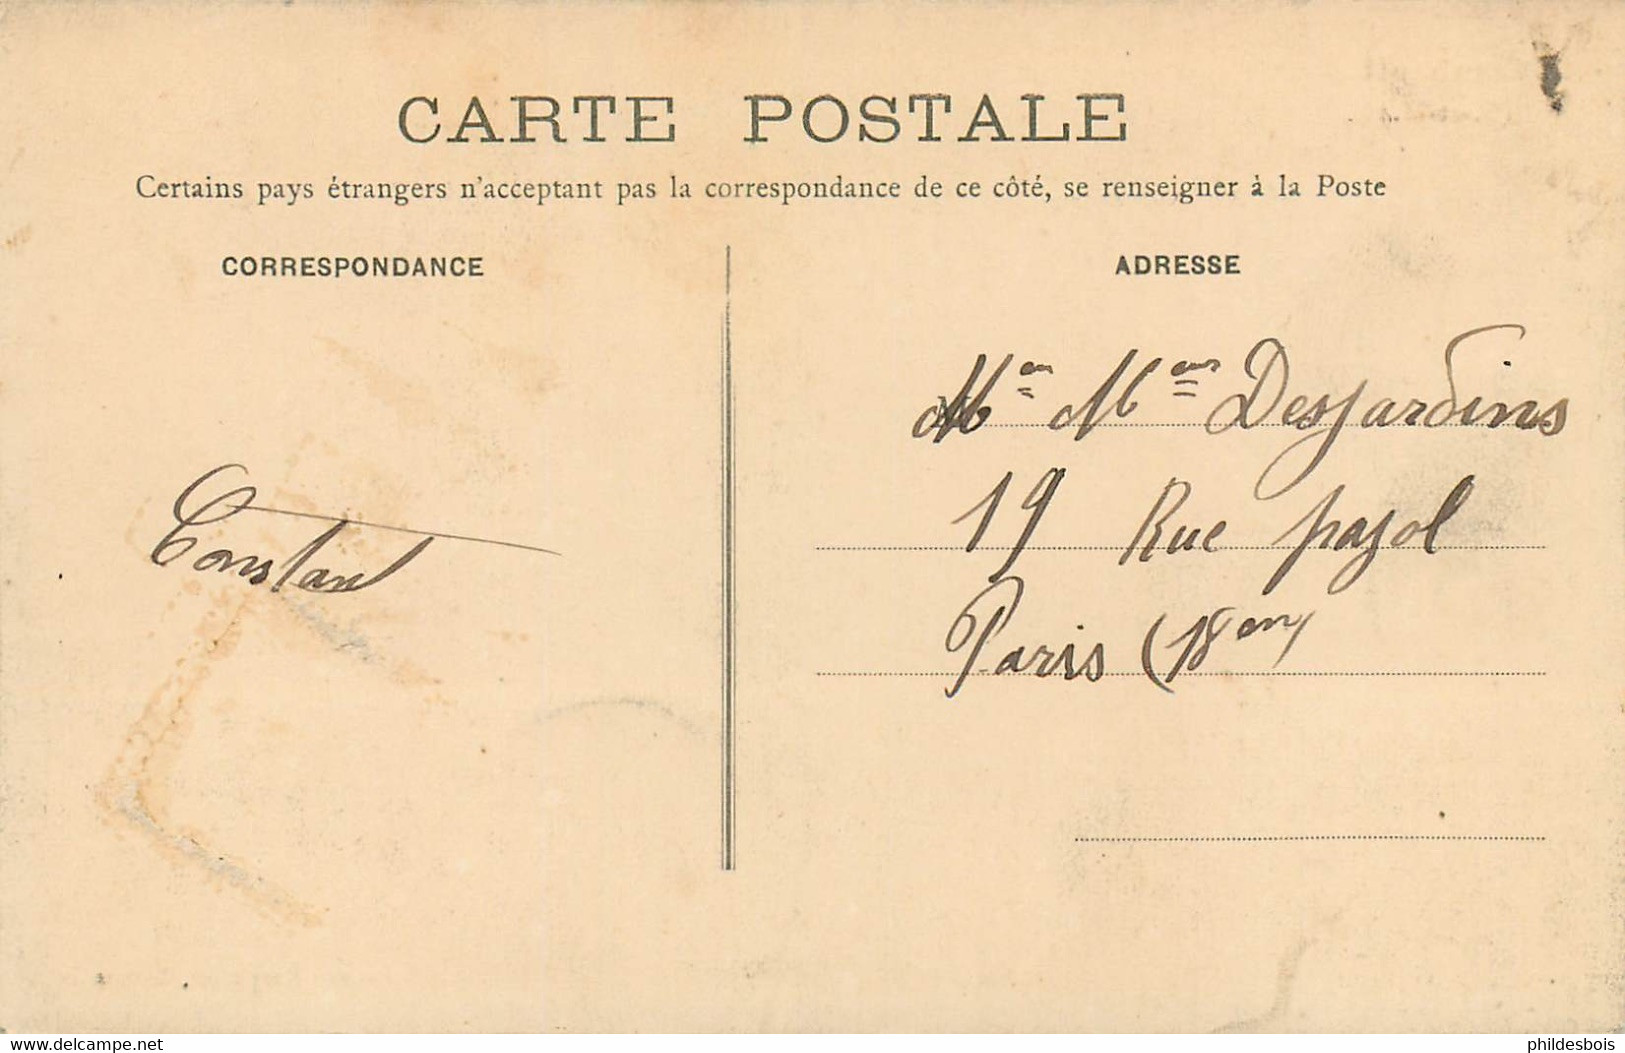 CARTE POSTALE
Certains pays étrangers n'acceptent pas la correspondance de ce côté, se renseigner à la Poste
CORRESPONDANCE
ADRESSE
Desjardins
19 Rue pajol
Constant
Paris (18em)
www.delcampe.net
phildesbois